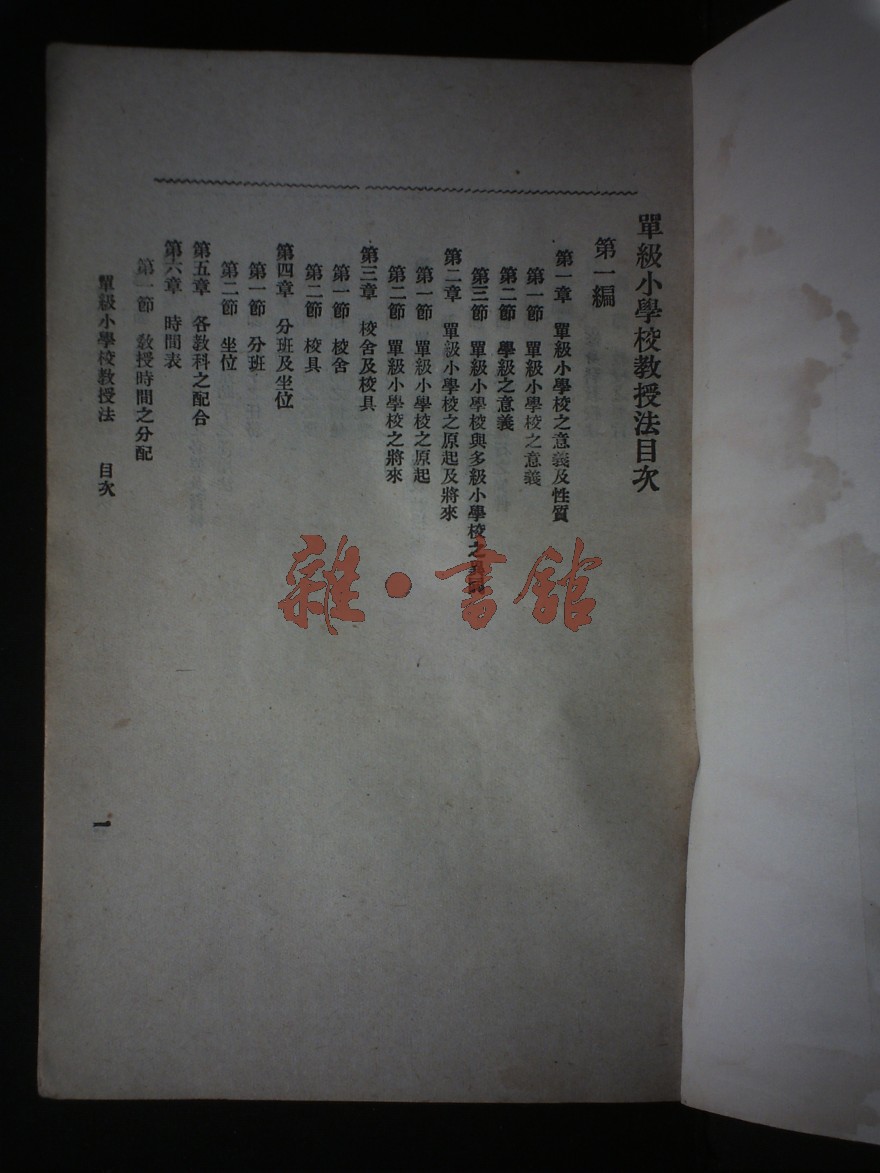 單級小學校教授法目次
第一編
第一章 單級小學校之意義及性質
第一節 單級小學校之意義
第二節 學級之意義
第三節 單級小學校與多級小學校之異同
第二章 單級小學校之原起及將來
第一節 單級小學校之原起
第二節 單級小學校之將來
第三章 校舍及校具
第一節 校舍
第二節 校具
第四章 分班及坐位
第一節 分班
第二節 坐位
第五章 各教科之配合
第六章 時間表
第一節 教授時間之分配
單級小學校教授法 目次
1
雜·書館